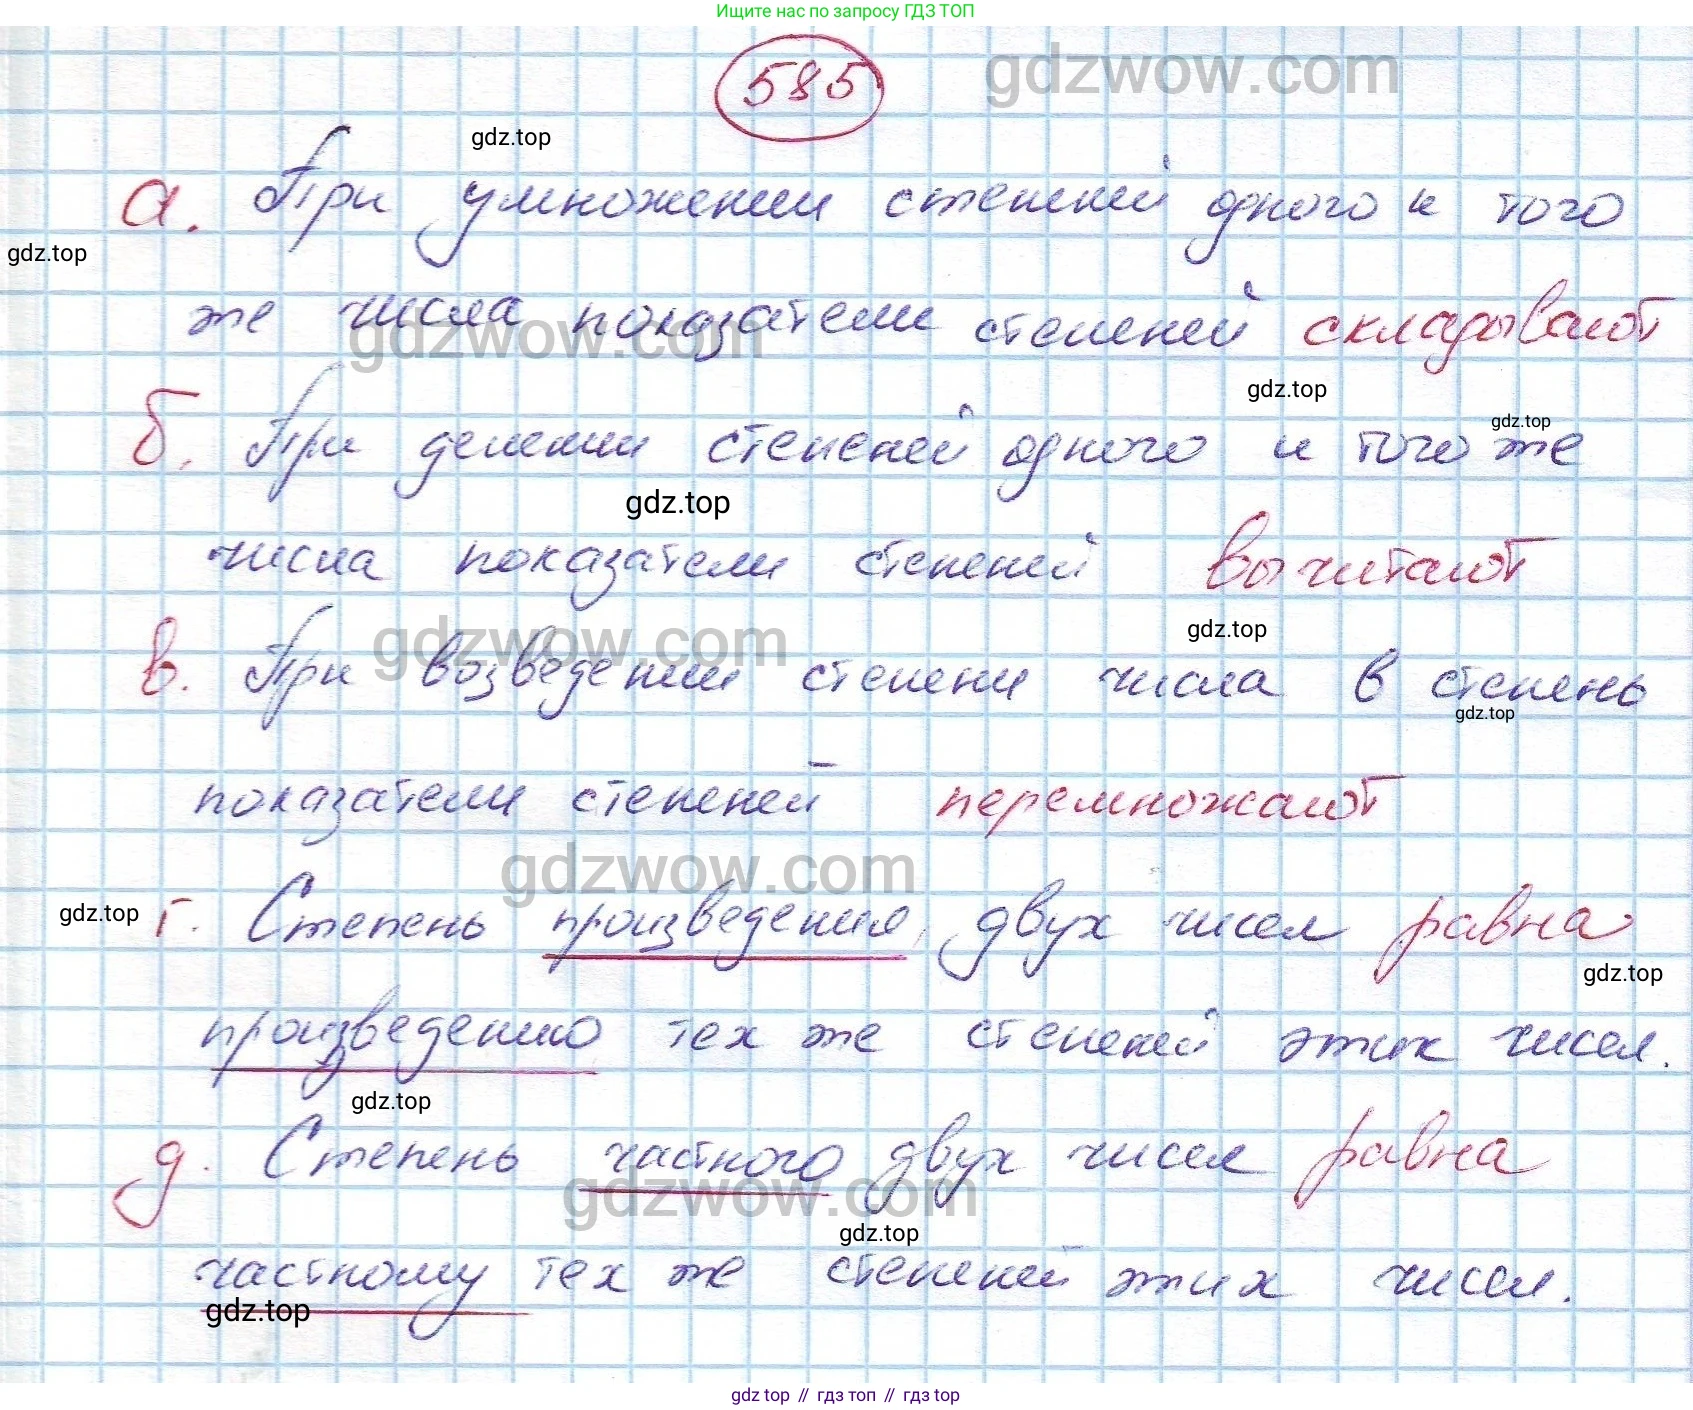 Ищите нас по запросу ГДЗ ТОП
585
gdzwow.com
gdz.top
а. При умножении степеней одного и того
gdz.top
же числа показатели степеней складывают
gdzwow.com
gdz.top
gdz.top
б. При делении степеней одного и того же
gdz.top
числа показатели степеней вычитают
gdzwow.com
gdz.top
в. При возведении степени числа в степень
gdz.top
показатели степеней перемножают
gdzwow.com
gdz.top
г. Степень произведения двух чисел равна
gdz.top
произведению тех же степеней этих чисел.
gdz.top
д. Степень частного двух чисел равна
gdzwow.com
gdz.top
частному тех же степеней этих чисел.
gdz.top
gdz top // гдз топ // гдз top